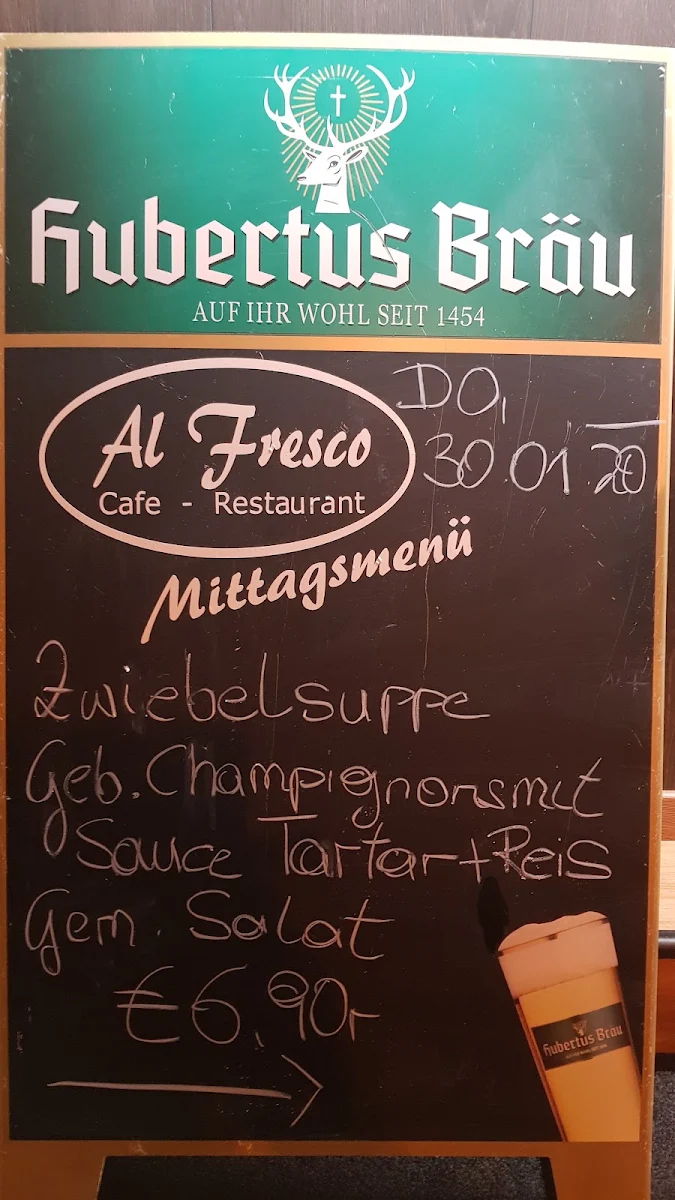 Hubertus Bräu
AUF IHR WOHL SEIT 1454
Al Fresco
Cafe - Restaurant
DO,
30.01.20
Mittagsmenü
Zwiebelsuppe
Geb. Champignons mit
Sauce Tartar + Reis
Gem. Salat
€ 6,90,-
Hubertus Bräu